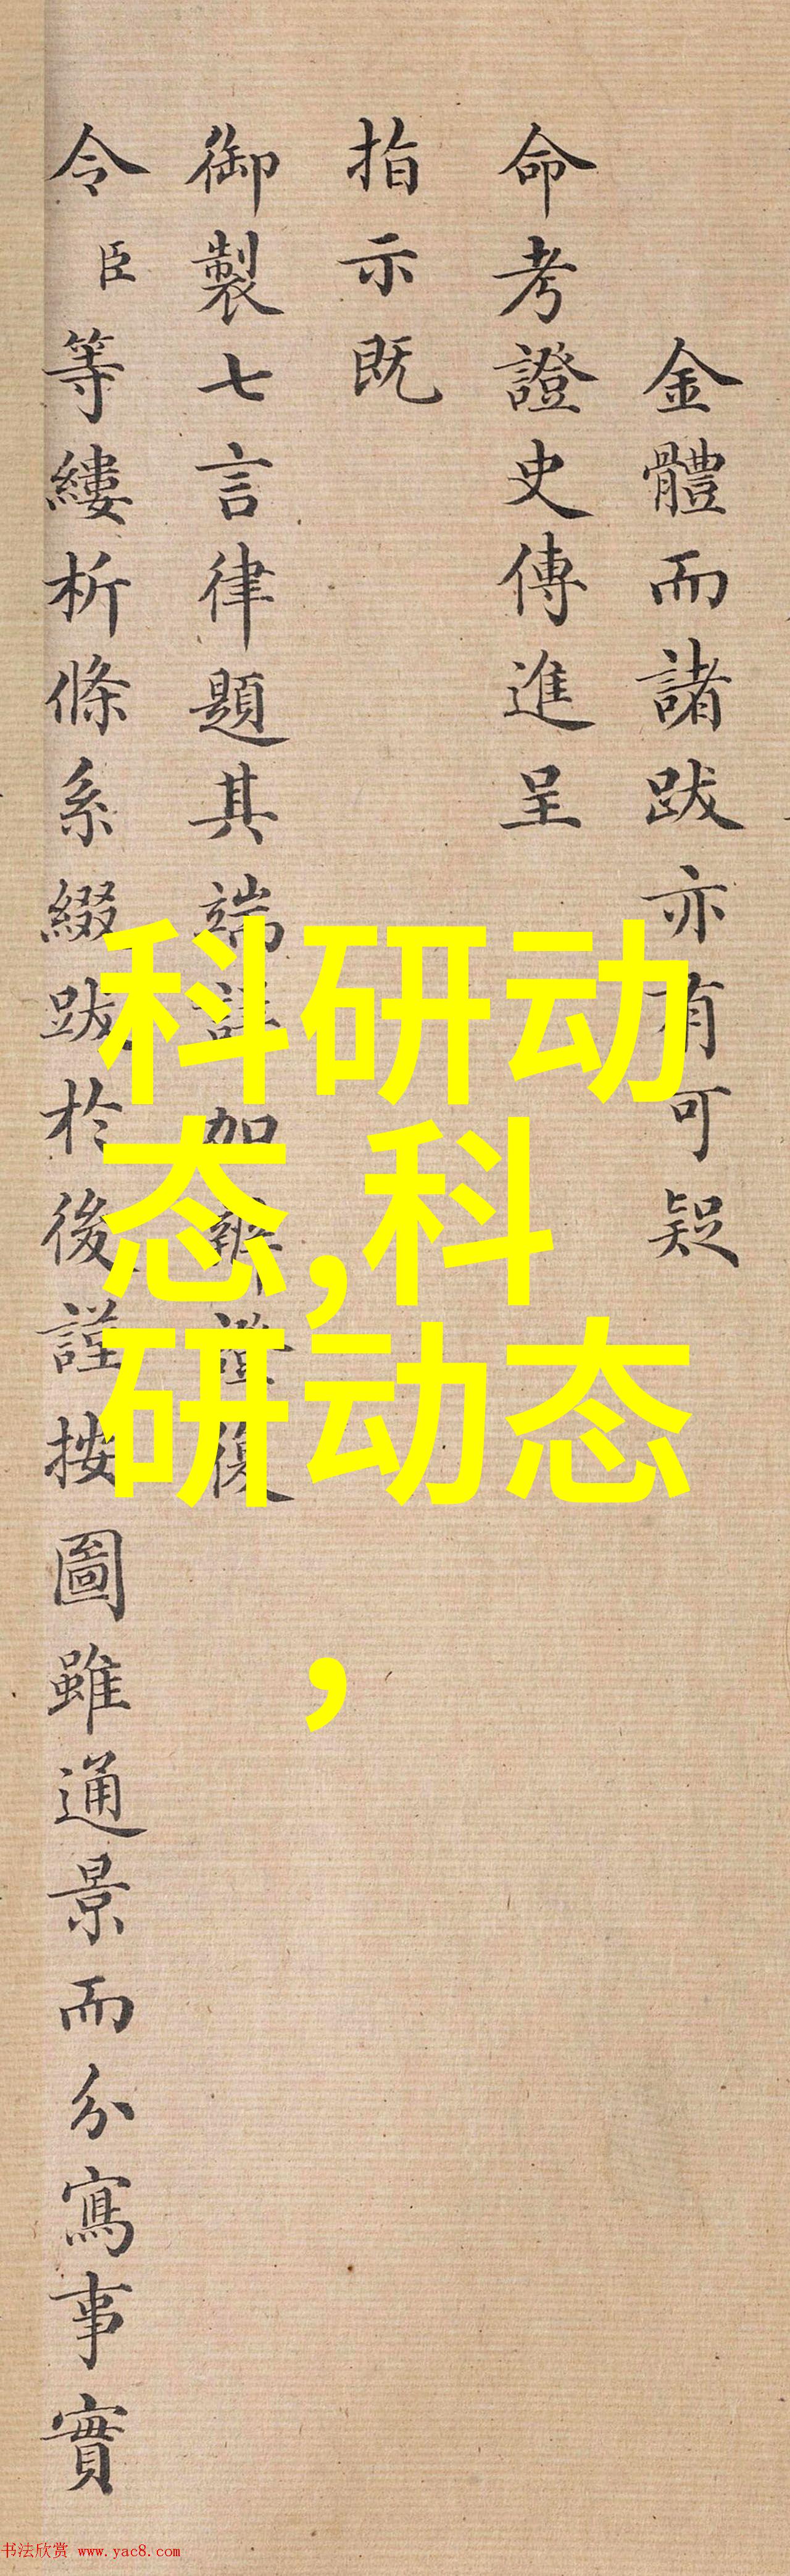 金體而諸跋亦有可疑
命考證史傳進呈
指示既
御製七言律題其端詳加辨證復
令臣等縷析條系綴跋於後謹按圖雖通景而分寫事實
科研动
态,科
研动态
,
书法欣赏 www.yac8.com